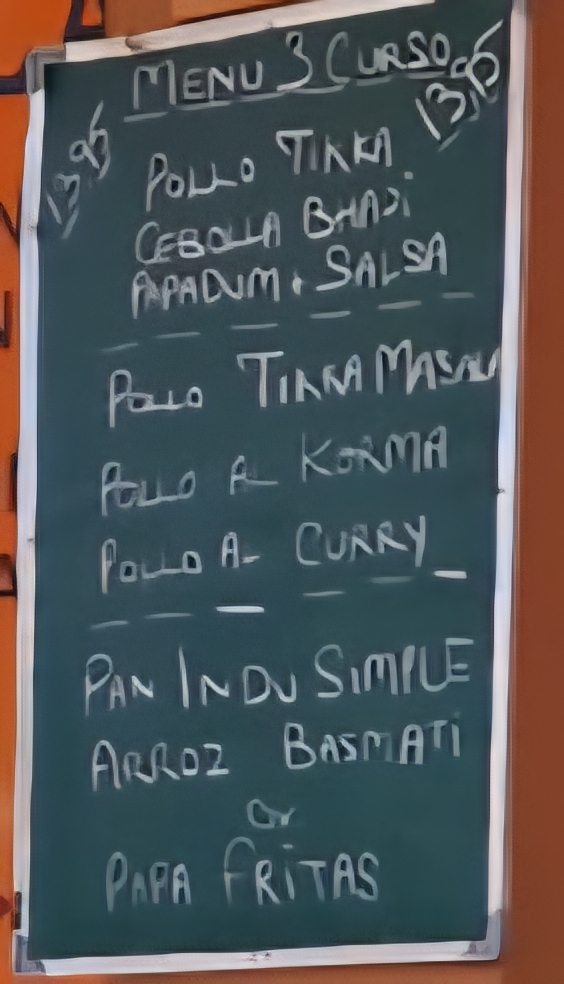 MENU 3 CURSO
13,95
13,95
POLLO TIKKA
CEBOLLA BHAJi
PAPADUM i SALSA
POLLO TIKKA MASALA
POLLO AL KORMA
POLLO AL CURRY
PAN INDU SIMPLE
ARROZ BASMATi
Or
PAPA FRiTAS